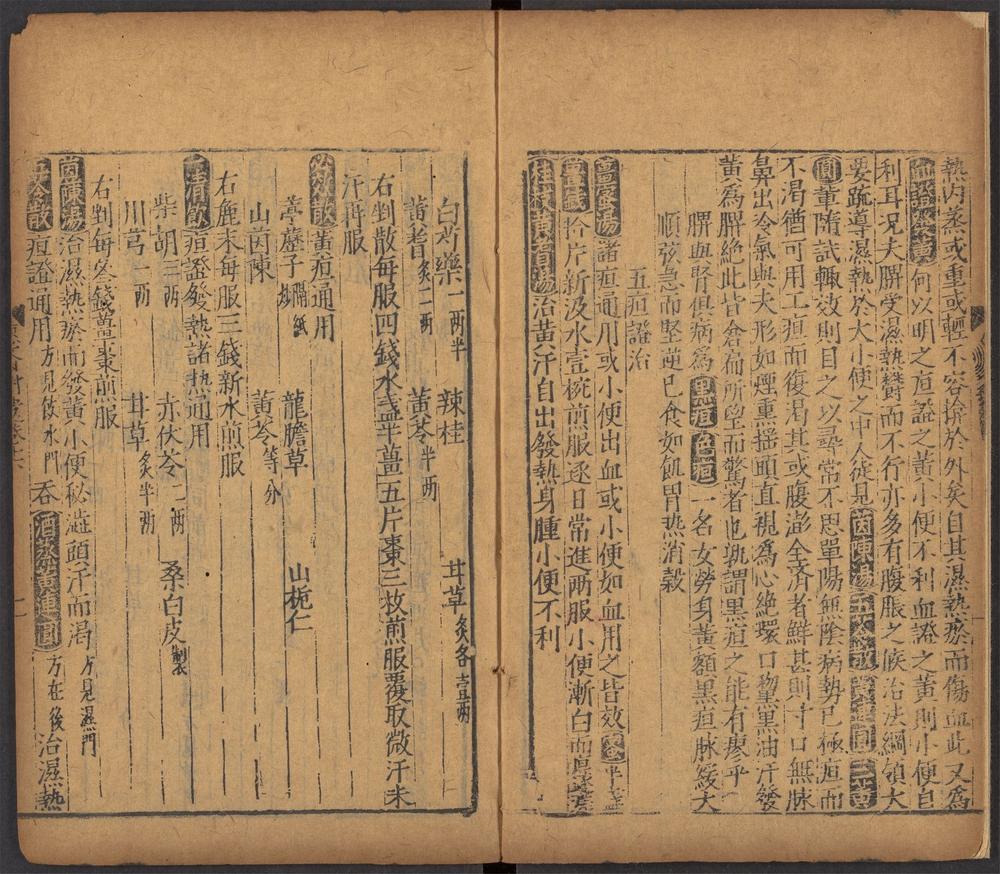 熱内蒸或重或輕不容揜於外矣自其濕熱瘀而傷血此又為
血證發黃何以明之疸證之黃小便不利血證之黃則小便自
利耳況夫脾受濕熱鬱而不行亦多有腹脹之候治法綱領大
要䟽導濕熱於大小便之中人徒見茵陳湯五苓散黃連圓三黃
圓軰隨試輒效則目之以尋常不思單陽無陰病勢已極疸而
不渴猶可用工疸而復渴其或腹澎全済者鮮甚則寸口無脉
鼻出冷氣與夫形如煙熏揺頭直視為心絶環口黧黑油汗發
黃為脾絶此皆倉扁所望而驚者也孰謂黑疸之能有瘳乎
脾與腎俱病為黑疸色疸一名女勞身黃額黒疸脉緩大
順弦急而堅逆已食如飢胃热消穀
五疸證治
諸疸通用或小便出血或小便如血用之皆效
拾片新汲水壹椀煎服逐日常進兩服小便漸白而
桂枝黃耆湯治黃汗自出發熱身腫小便不利
白芍藥一两半 辣桂 甘草炙各壹两
黃耆炙二两 黃芩半两
右剉散每服四錢水盞半薑五片棗三枚煎服覆取微汗未
汗再服
散黃疸通用
葶藶子隔紙炒 龍膽草 山梔仁
山茵陳 黃芩等分
右麄末每服三錢新水煎服
清飲疸證發熱諸热通用
柴胡三两 赤伏苓二两 桑白皮製炙
川芎一两 甘草炙半两
右剉每叁錢薑棗煎服
茵陳湯治濕熱瘀而發黃小便秘澁頭汗而渴方見濕門
五苓散疸證通用方見飲水門 吞酒蒸黃連圓方在後治濕熱